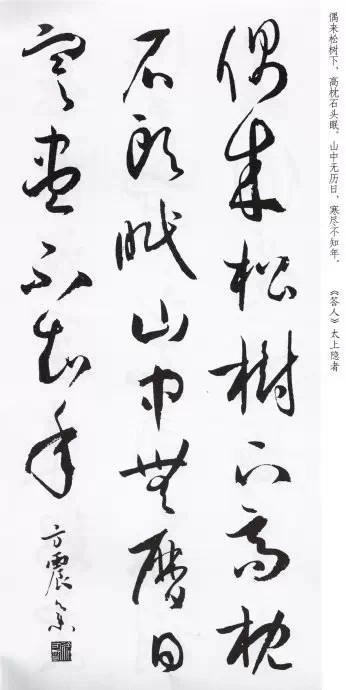 偶来松树下，高枕石头眠。山中无历日，寒尽不知年。 《答人》太上隐者
偶来松樹下高枕
石頭眠山中無曆日
寒盡不知年
方震